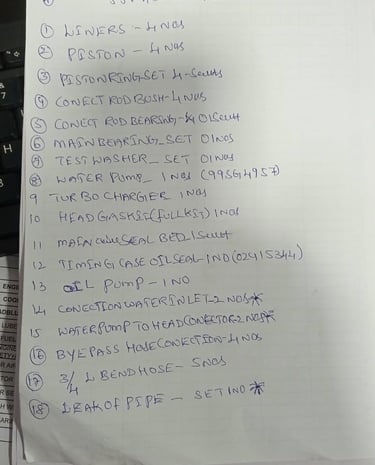 ① LINERS - 4 NOS
② PISTON - 4 NOS
③ PISTON RING SET 4-
④ CONECT ROD BUSH - 4 NOS
⑤ CONECT ROD BEARING -
⑥ MAIN BEARING_SET 01NOS
⑦ TEST WASHER_ SET 01NOS
⑧ WATER PUMP_ 1 NOS (995G14957)
9 TURBO CHARGIER 1NOS
10 HEAD GASKIT (FULL KIT) 1NOS
11 MAIN SEAL BED
12 TIMING CASE OIL SEAL - 1NO (02415344)
13 OIL PUMP - 1 NO
14 CONECTION WATER INLET - 2 NOS*
15 WATER PUMP TO HEAD CONECTOR - 2 NOS*
⑯ BYEPASS HOSE CONECTION - 4 NOS
⑰ 3/4 L BEND HOSE - 5 NOS
⑱ LEAK OF PIPE - SET 1NO *